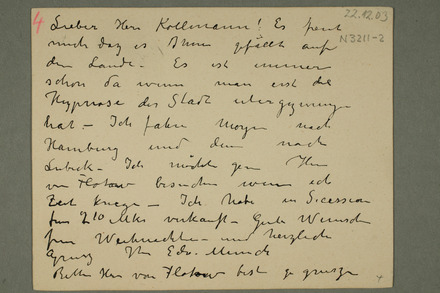 4
22.12.03
N3211-2
Lieber Herr Kollmann! Es freut
mich dag es Ihnen gefällt auf
dem Lande. Es ist immer
schon da wenn man erst die
Hypnose der Stadt
hat – Ich fahre Morgen nach
Hamburg und dann nach
Lubeck – Ich möchte gern Herrn
von Flotow besuchen wenn ich
Zeit kriege – Ich habe in Secession
fur 210 Mks verkauft – Gute Wunsche
fur Weihnachten – und herzliche
Gruss Ihr Edv. Munch
Bitte Herr von Flotow best zu grussen